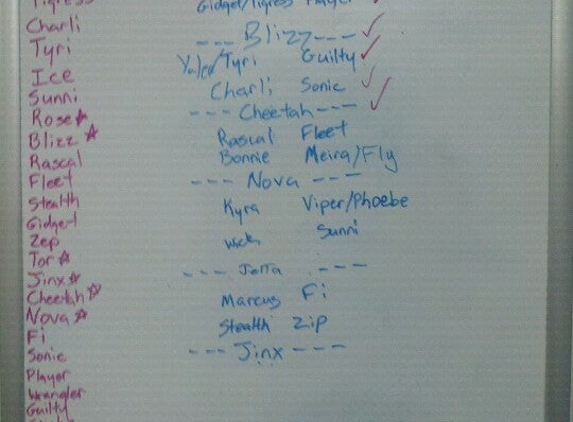 Tigress
Charli
Tyri
Ice
Sunni
Rose☆
Blizz ☆
Rascal
Fleet
Stealth
Gidget
Zep
Tor☆
Jinx☆
Cheetah☆
Nova☆
Fi
Sonic
Player
Wrangler
Guilty
Gidget/Tigress Player ✓
--- Blizz --- ✓
/Tyri Guilty ✓
Charli Sonic ✓
--- Cheetah --- ✓
Rascal Fleet
Bonnie Meira/Fly
--- Nova ---
Kyra Viper/Phoebe
Sunni
--- ---
Marcus Fi
Stealth Zip
--- Jinx ---